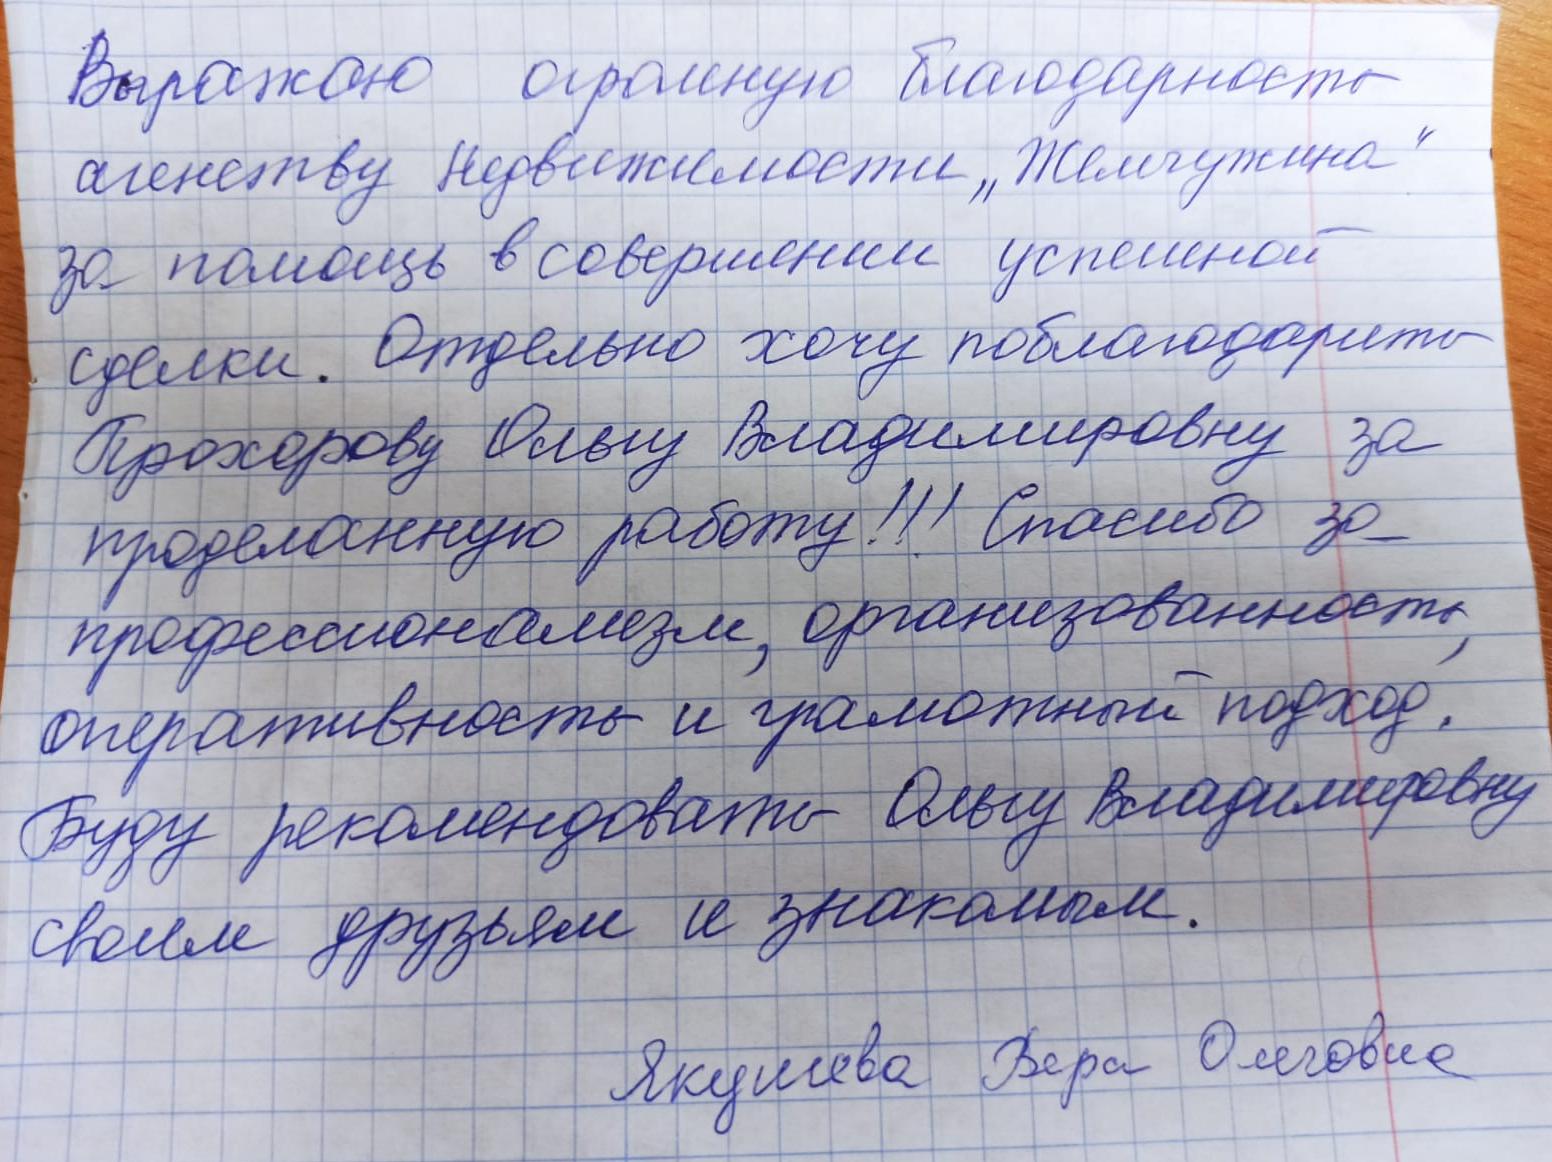 Выражаю огромную благодарность
агенству Недвижимости „Жемчужина“
за помощь в совершении успешной
сделки. Отдельно хочу поблагодарить
Прохорову Ольгу Владимировну за
проделанную работу!!! Спасибо за
профессионализм, организованность,
оперативность и грамотный подход.
Буду рекомендовать Ольгу Владимировну
своим друзьям и знакомым.
Якушева Вера Олеговна